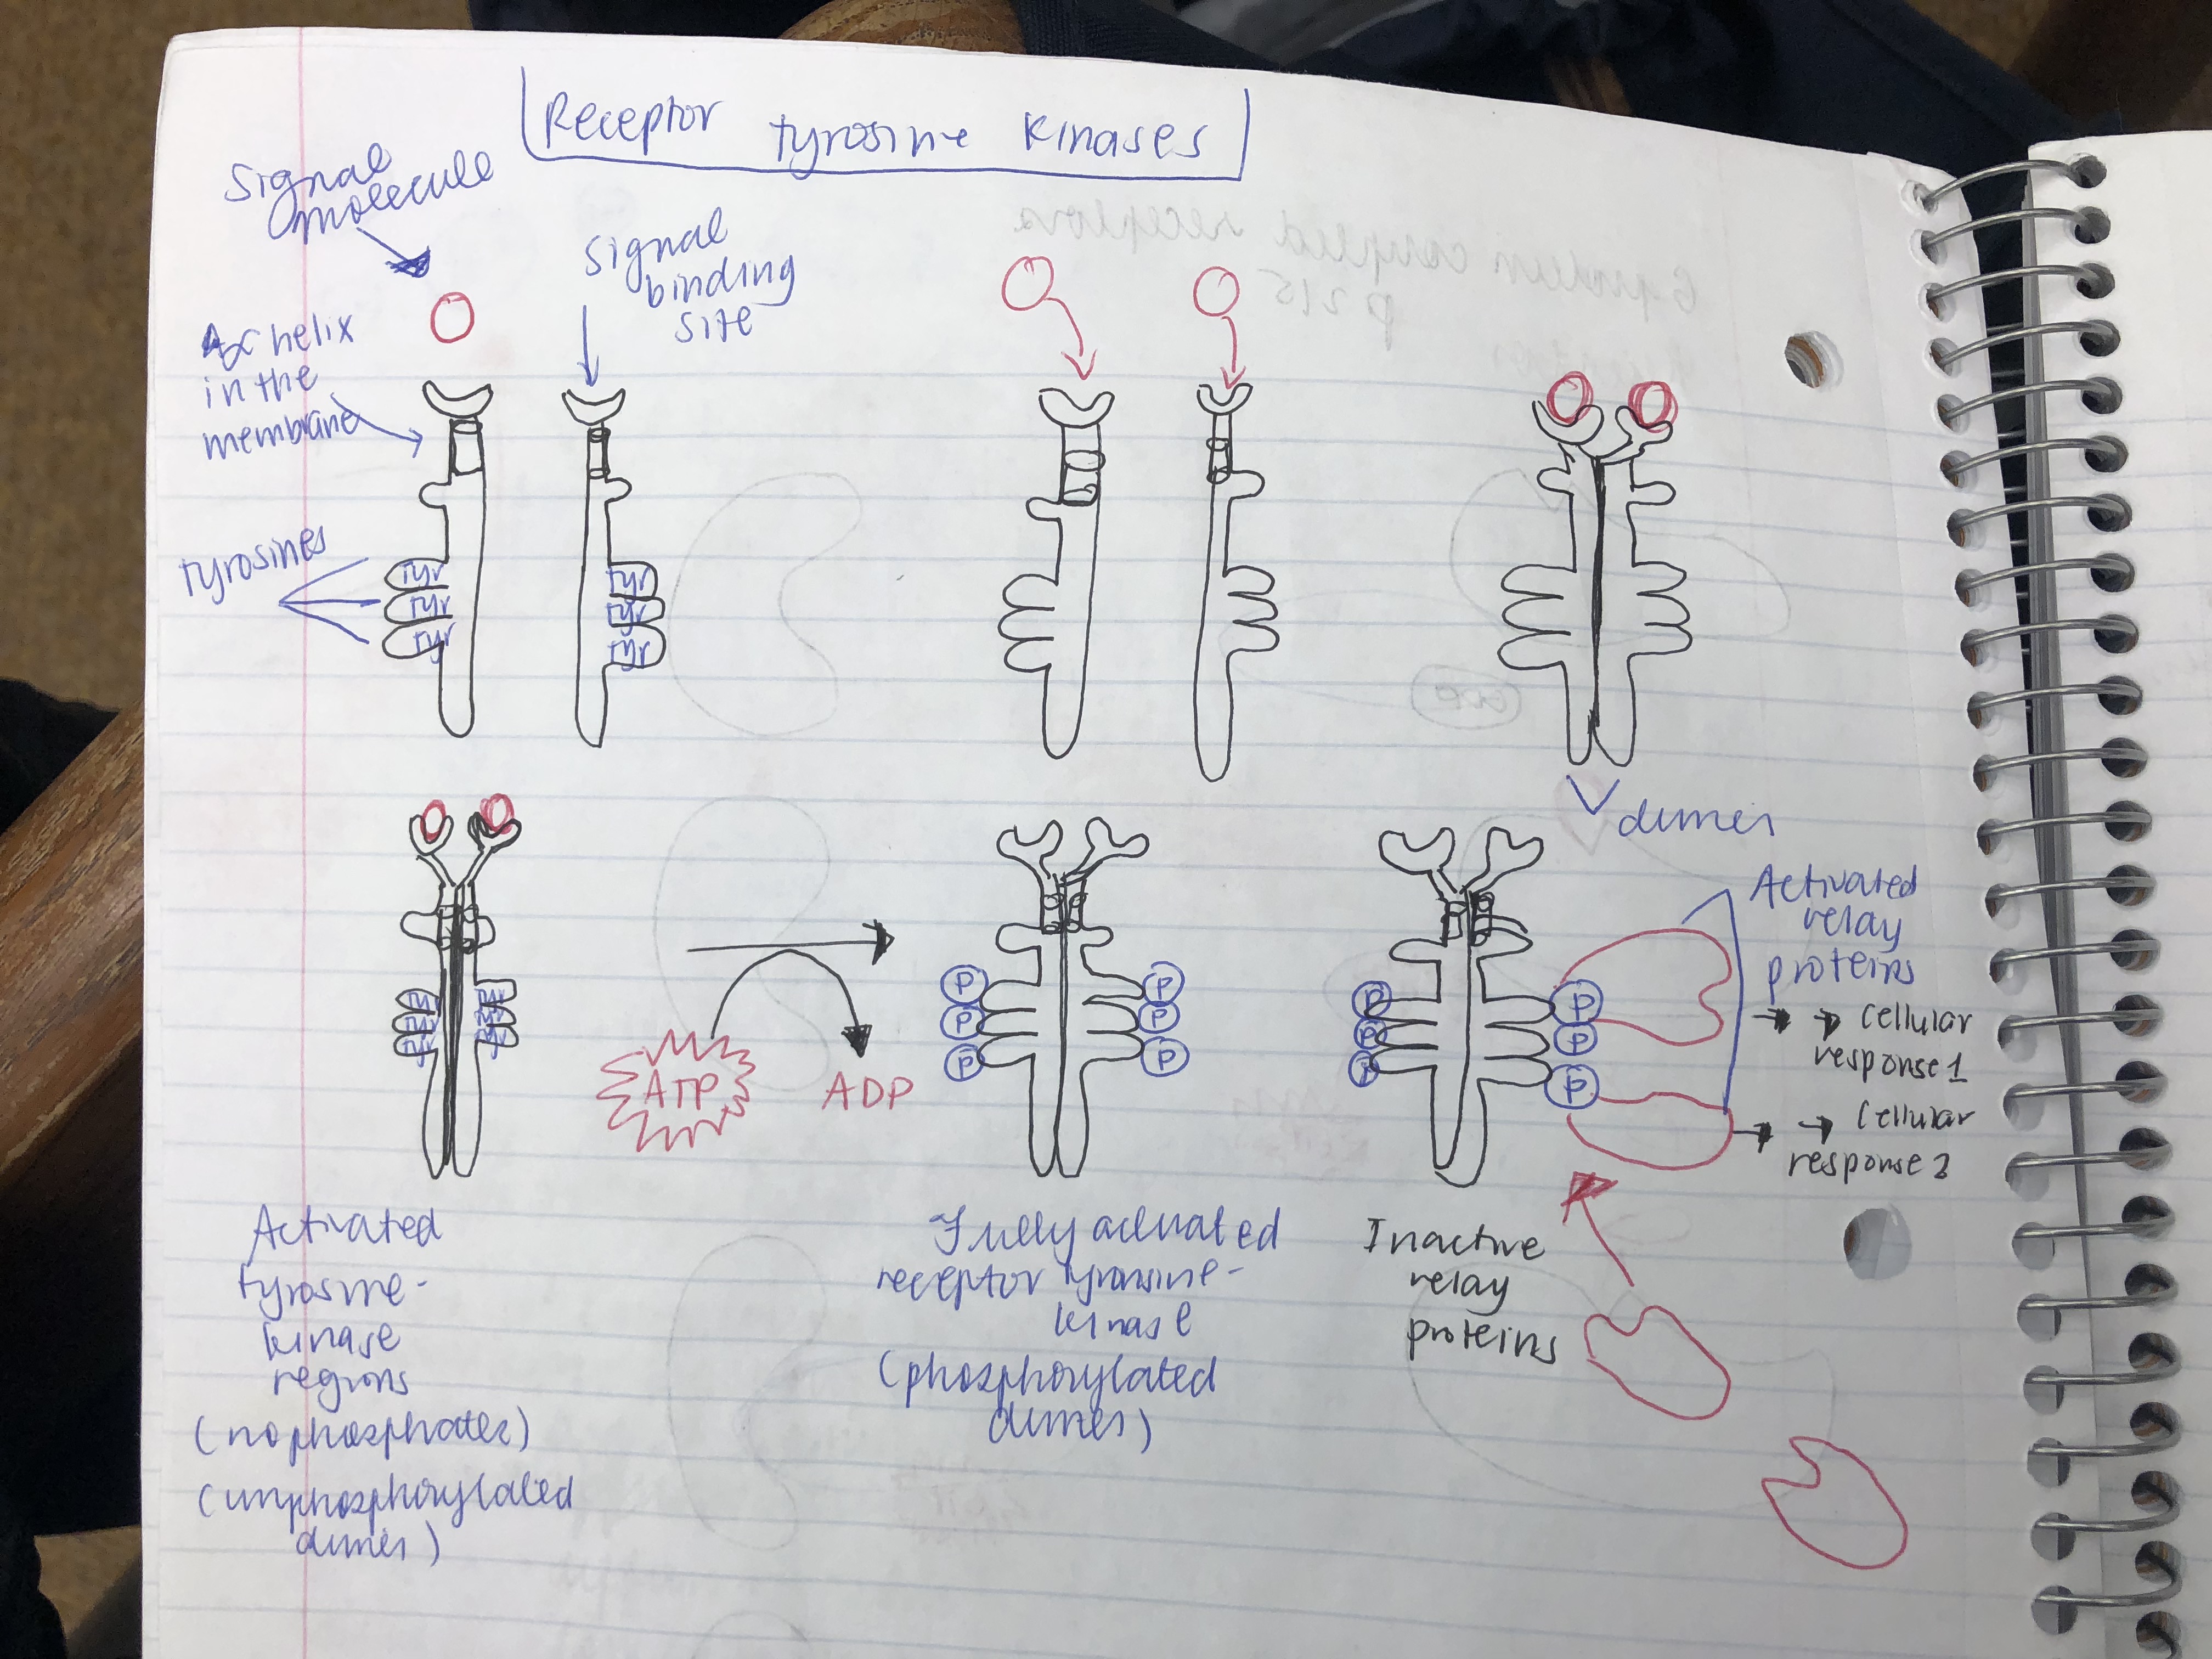 Receptor tyrosine kinases
Signal
molecule
Signal
binding
site
α helix
in the
membrane
tyrosines
Tyr
Tyr
Tyr
Tyr
Tyr
Tyr
dimer
Tyr
Tyr
Tyr
Tyr
Tyr
Tyr
ATP
ADP
P
P
P
P
P
P
P
P
P
P
P
P
Activated
relay
proteins
cellular
response 1
cellular
response 2
Activated
tyrosine-
kinase
regions
(no phosphates)
(unphosphorylated
dimer)
Fully activated
receptor tyrosine-
kinase
(phosphorylated
dimer)
Inactive
relay
proteins
G protein coupled receptors
p 215